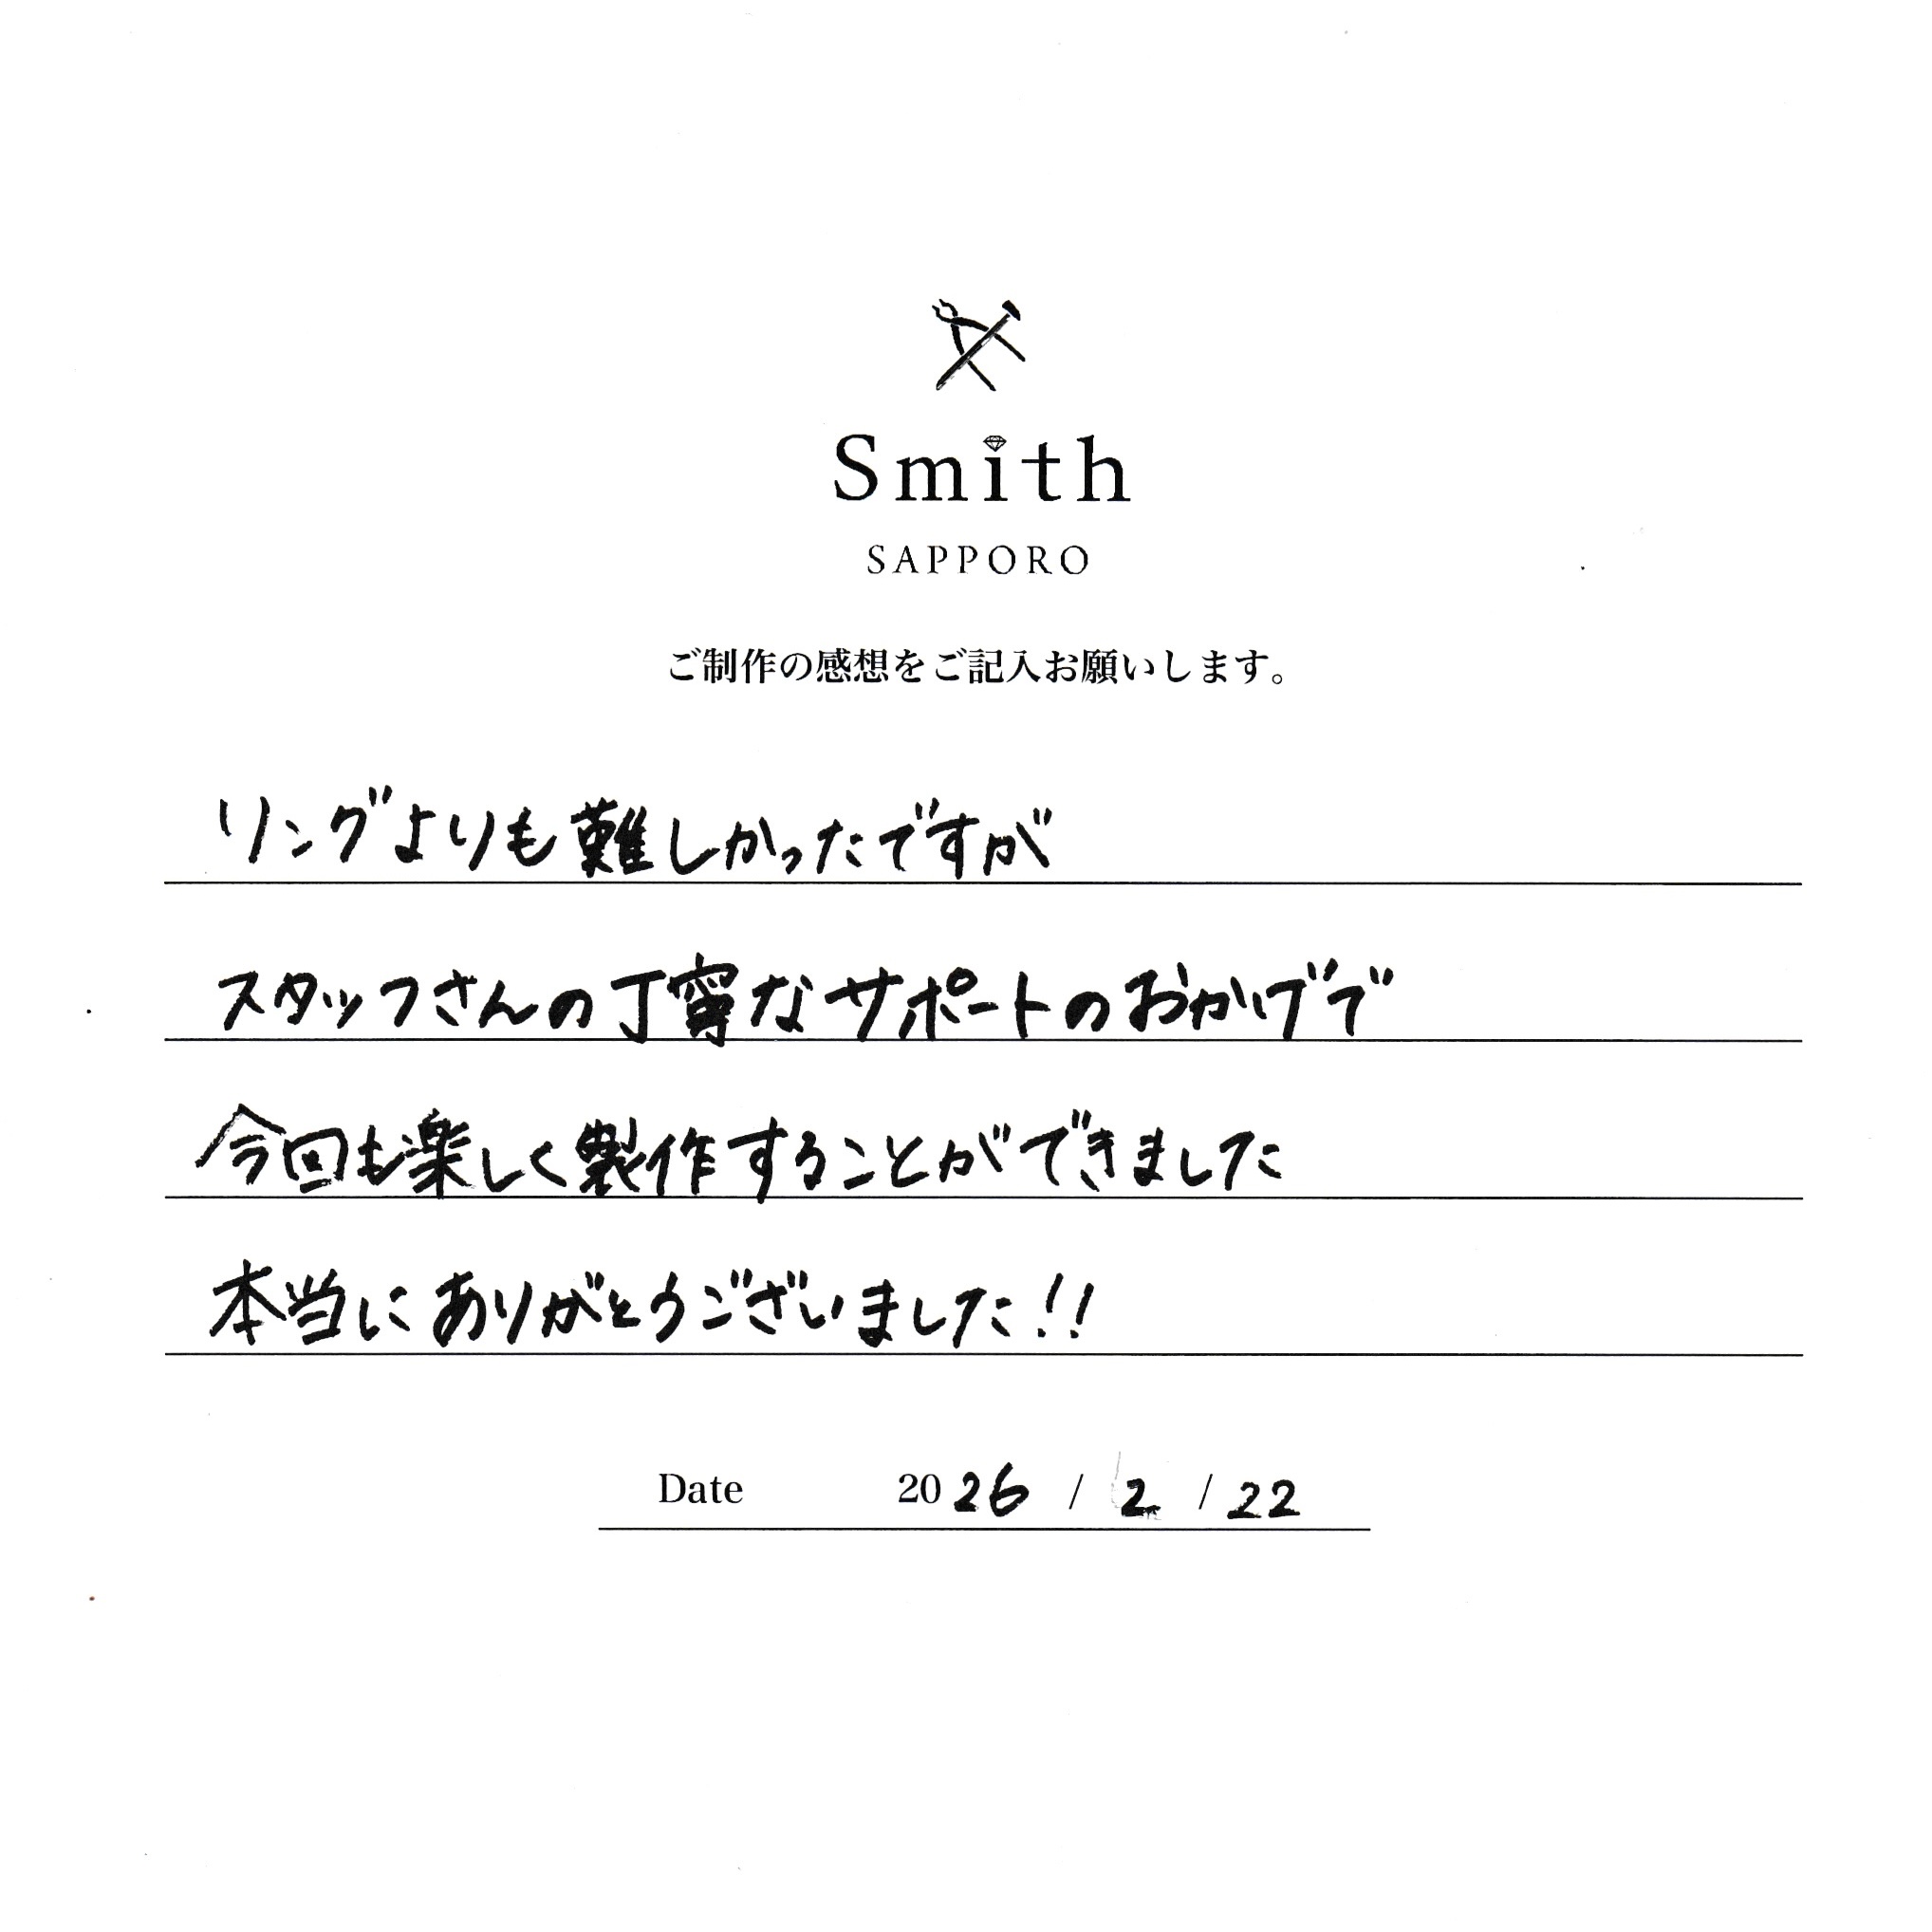 Smith
SAPPORO
ご制作の感想をご記入お願いします。
リングよりも難しかったですが
スタッフさんの丁寧なサポートのおかげで
今回も楽しく製作することができました
本当にありがとうございました!!
Date 2026 / 2 / 22